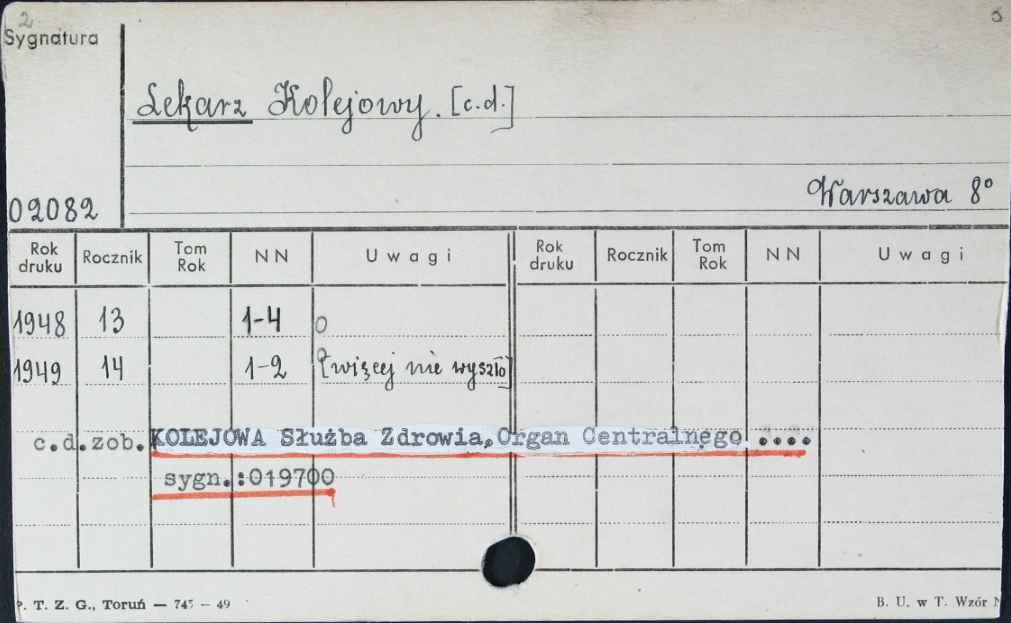 2
Sygnatura
Lekarz Kolejowy. [c.d.]
Warszawa 8°
02082
Rok druku Rocznik Tom Rok NN Uwagi Rok druku Rocznik Tom Rok NN Uwagi
1948 13 1-4 0
1949 14 1-2 [więcej nie wyszło]
c.d.zob. KOLEJOWA Służba Zdrowia, Organ Centralnego ....
sygn.:019700
P. T. Z. G., Toruń — 745 — 49
B. U. w T. Wzór